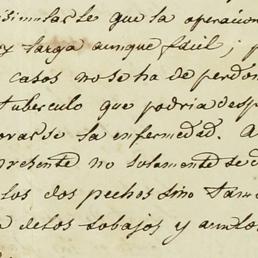 isimularle que la operacion
y larga aunque fácil; p
casos no se ha de perdon
tuberculo que podria desp
orarse la enfermedad. A
presente no solamente se d
los dos pechos sino tam
de los sobajos y